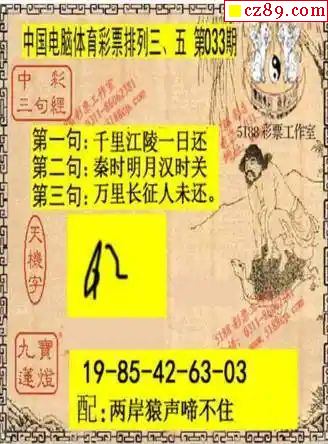 cz89.com
中国电脑体育彩票排列三、五 第033期
5188彩票工作室
中彩
三句經
第一句:千里江陵一日还
第二句:秦时明月汉时关
第三句:万里长征人未还。
天機字
九寶
蓮燈
19-85-42-63-03
配:两岸猿声啼不住